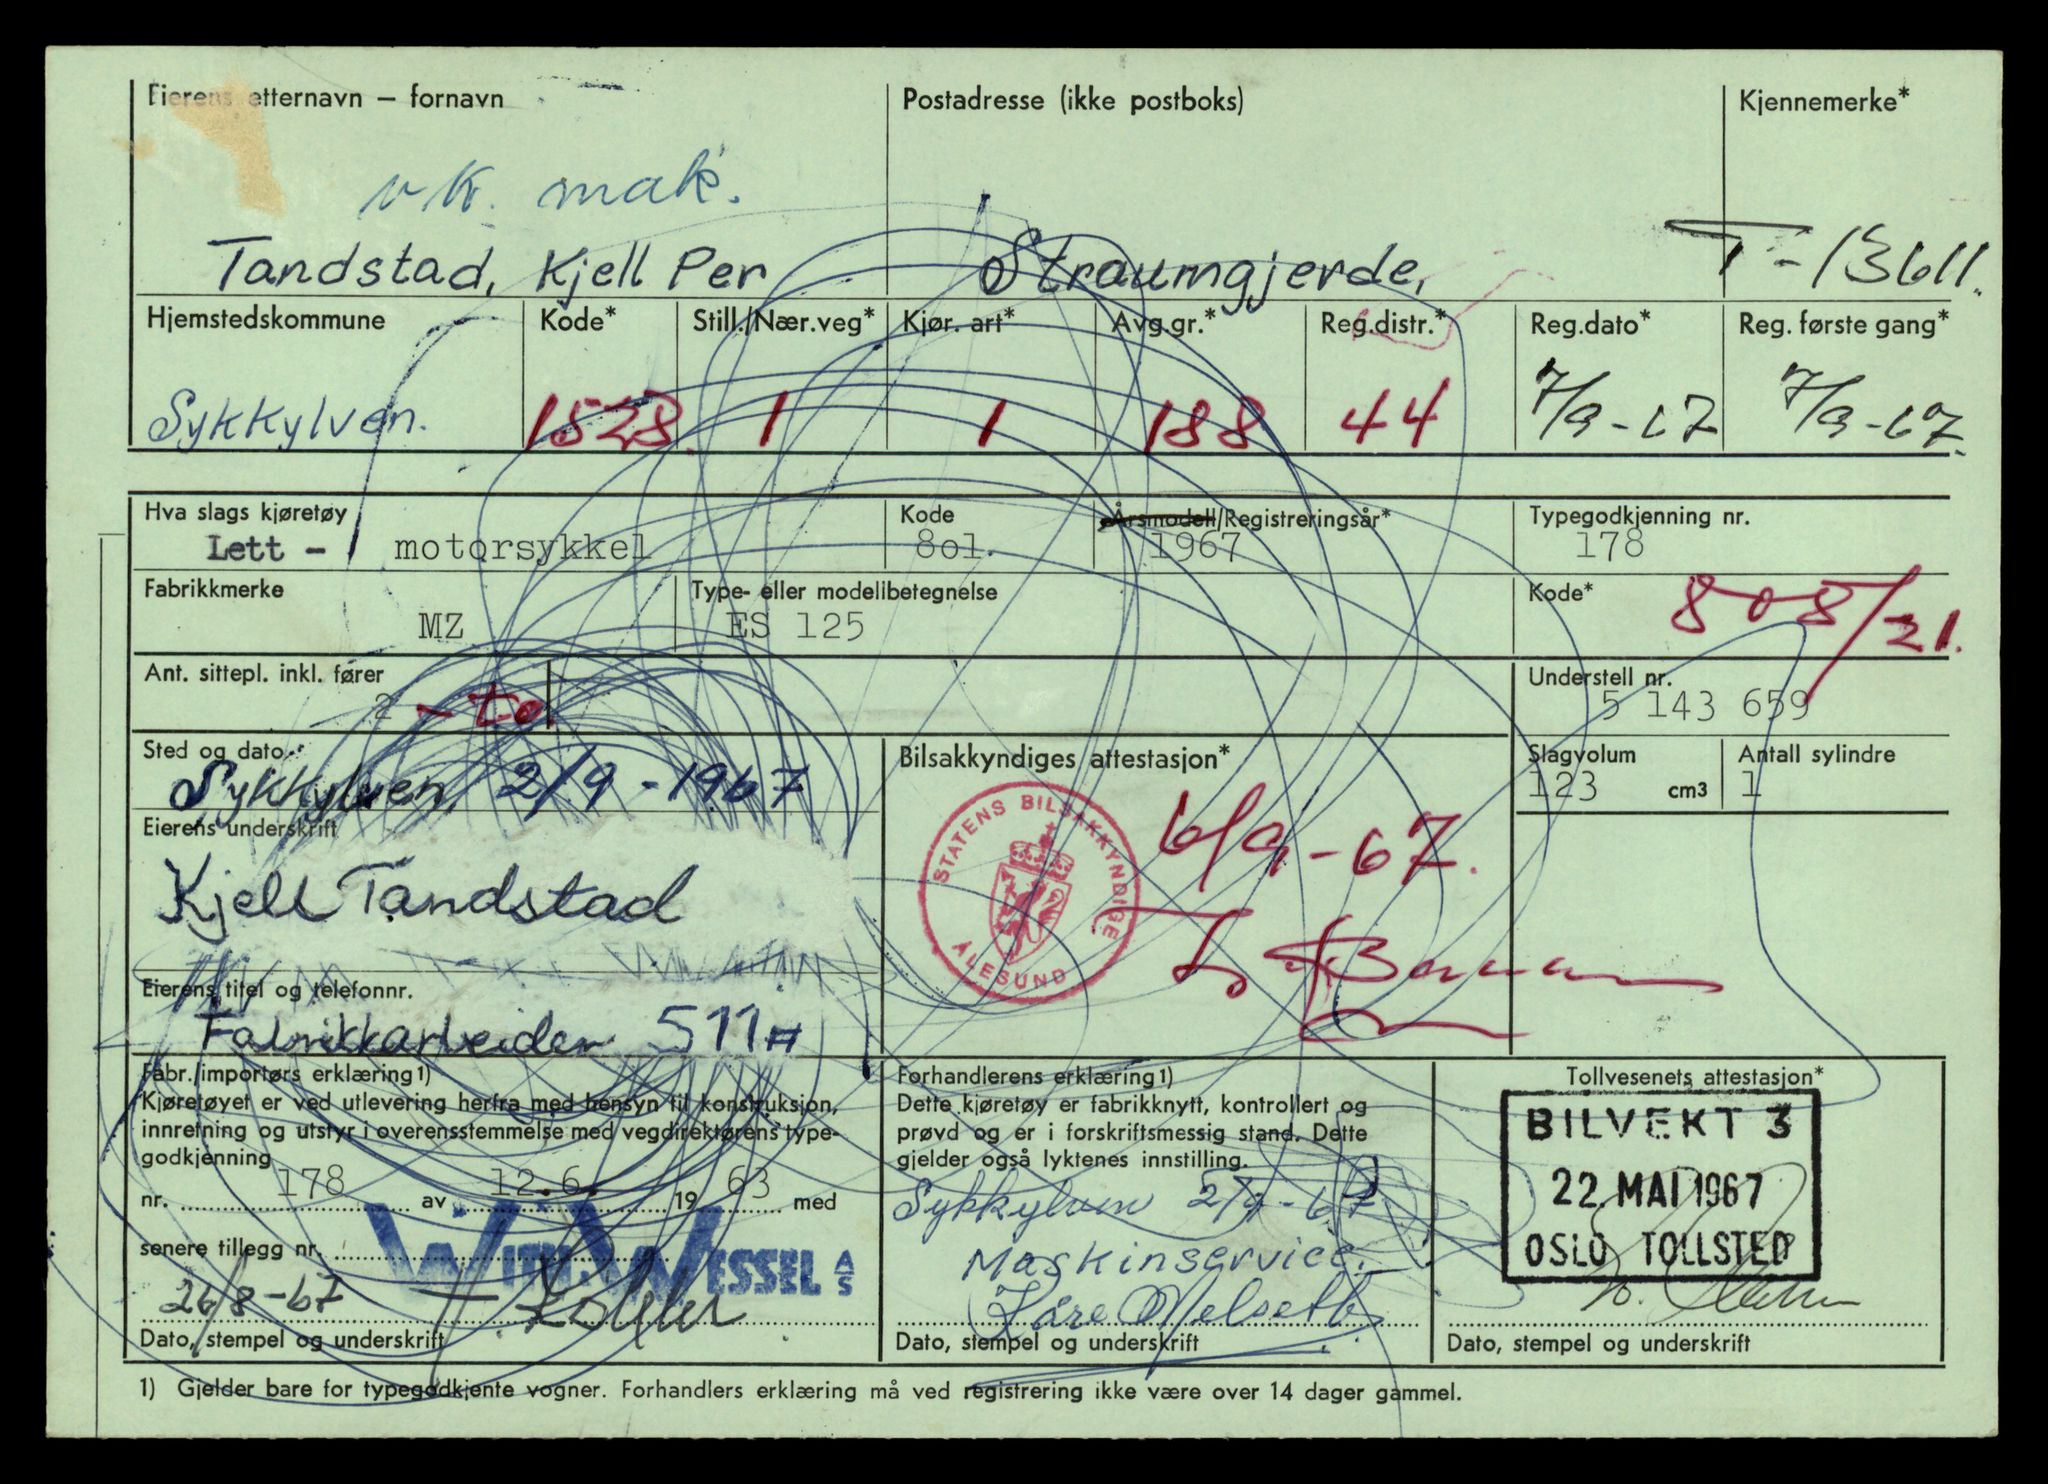 Eierens etternavn – fornavn
Postadresse (ikke postboks)
Kjennemerke*
vk. mak.
Tandstad, Kjell Per
Straumgjerde,
T-13611.
Hjemstedskommune
Kode*
Still./Nær.veg*
Kjør. art*
Avg.gr.*
Reg.distr.*
Reg.dato*
Reg. første gang*
Sykkylven.
1528
1
1
188
44
7/9-67
7/9-67.
Hva slags kjøretøy
Kode
Årsmodell/Registreringsår*
Typegodkjenning nr.
Lett - motorsykkel
8o1.
1967
178
Fabrikkmerke
Type- eller modellbetegnelse
Kode*
MZ
ES 125
808/21.
Ant. sittepl. inkl. fører
Understell nr.
2 - to
5 143 659
Sted og dato
Bilsakkyndiges attestasjon*
Slagvolum
Antall sylindre
Sykkylven, 2/9-1967
123 cm3
1
Eierens underskrift
STATENS BILSAKKYNDIGE
ÅLESUND
6/9-67.
Kjell Tandstad
Eierens titel og telefonnr.
Fabrikkarbeider 511
Fabr./importørs erklæring1)
Kjøretøyet er ved utlevering herfra med hensyn til konstruksjon,
innretning og utstyr i overensstemmelse med vegdirektørens type-
godkjenning
nr. 178 av 12.6. 1963 med
senere tillegg nr.
WITH & WESSEL A/S
26/8-67
Dato, stempel og underskrift
Forhandlerens erklæring1)
Dette kjøretøy er fabrikknytt, kontrollert og
prøvd og er i forskriftsmessig stand. Dette
gjelder også lyktenes innstilling.
Sykkylven 2/9-67
Maskinservice.
Kåre Melseth
Dato, stempel og underskrift
Tollvesenets attestasjon*
BILVEKT 3
22. MAI 1967
OSLO TOLLSTED
Dato, stempel og underskrift
1) Gjelder bare for typegodkjente vogner. Forhandlers erklæring må ved registrering ikke være over 14 dager gammel.